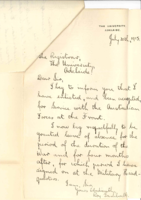 THE UNIVERSITY,
ADELAIDE.
July 20th, 1918
The Registrar,
The University,
Adelaide.
Dear Sir,
I beg to inform you that I
have enlisted, and been accepted,
for Service with the Australian
Forces at the Front.
I now beg respectfully to be
granted leave of absence for the
period of the duration of the
War and for four months
after, for which period I have
signed on at the Military
I am, Sir,
Yours obediently,